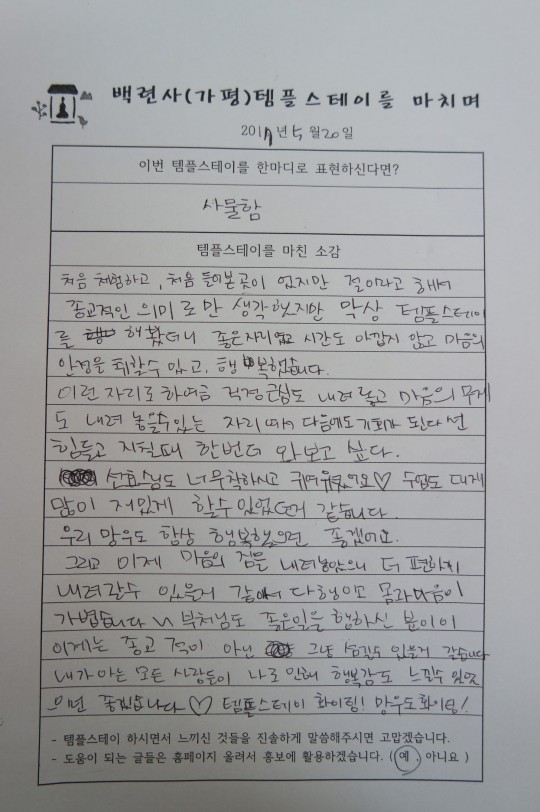 백련사(가평)템플스테이를 마치며
2019년 5월 20일
이번 템플스테이를 한마디로 표현하신다면?
사물함
템플스테이를 마친 소감
처음 체험하고, 처음 들어본곳이 었지만 절이라고 해서
종교적인 의미로만 생각했지만 막상 템플스테이
를 해봤더니 좋은자리였고 시간도 아깝지 않고 마음의
안정을 취할수 있고, 행복했습니다.
이런 자리로 하여금 걱정근심도 내려놓고 마음의 무게
도 내려 놓을수있는 자리 여서 다음에도 기회가 된다면
힘들고 지칠때 한번더 와보고 싶다.
너무착하시고 귀여우셨어요♡ 수업도 되게
많이 재밌게 할수 있었던거 같습니다.
우리 망우도 항상 행복했으면 좋겠어요.
그리고 이제 마음의 짐을 내려놓았으니 더 편하게
내려갈수 있을거 같아서 다행이고 몸과마음이
가볍습니다 부처님도 좋은일을 행하신 분이이
이제는 종교 절이 아닌 그냥 쉼길수 있을거 같습니다
내가 아는 모든 사람들이 나로 인해 행복감도 느낄수 있었
으면 좋겠습니다♡ 템플스테이 화이팅! 망우도화이팅!
- 템플스테이 하시면서 느끼신 것들을 진솔하게 말씀해주시면 고맙겠습니다.
- 도움이 되는 글들은 홈페이지 올려서 홍보에 활용하겠습니다. ( 예 , 아니요 )